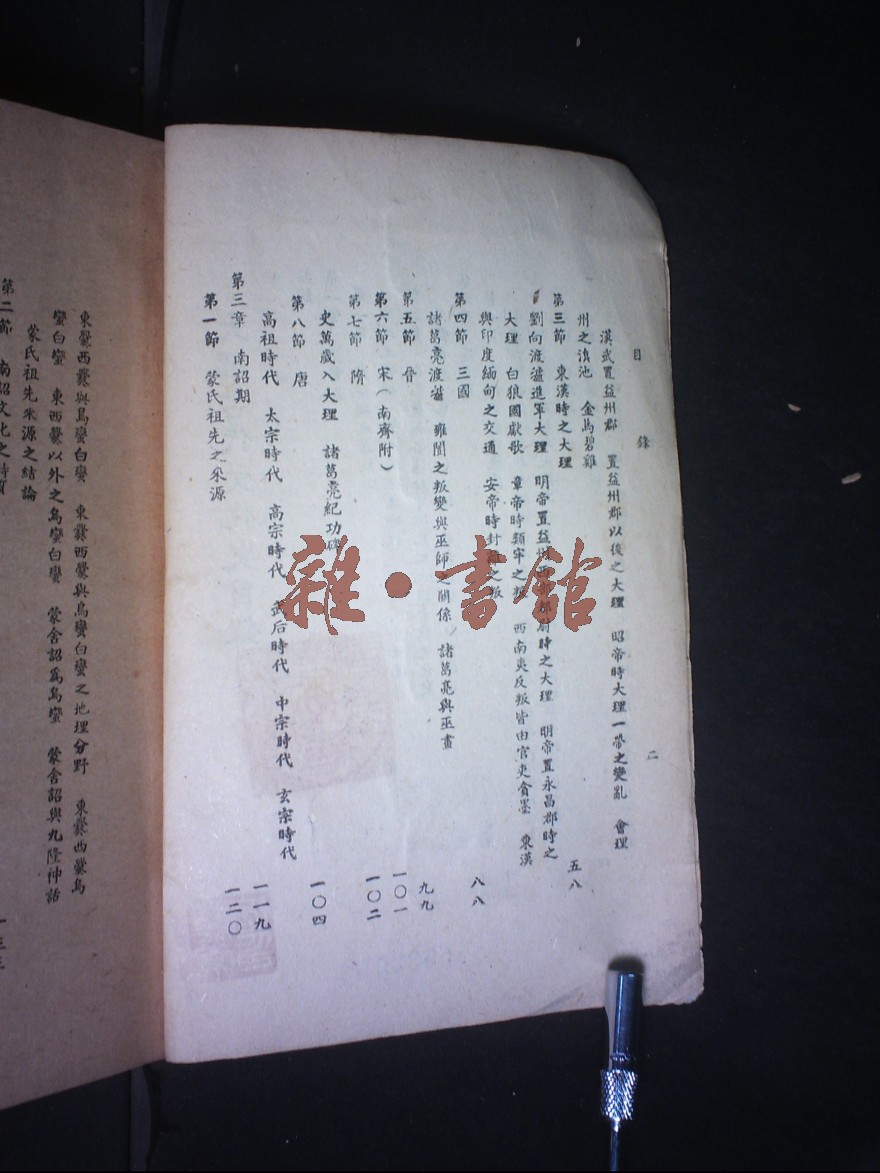 目 錄 二
漢武置益州郡 置益州郡以後之大理 昭帝時大理一帶之變亂 會理
州之滇池 金馬碧雞
第三節 東漢時之大理 五八
劉向渡瀘進軍大理 明帝置益州西部都尉時之大理 明帝置永昌郡時之
大理 白狼國獻歌 章帝時類牢之叛 西南夷反叛皆由官吏貪墨 東漢
與印度緬甸之交通 安帝時封離之叛
第四節 三國 八八
諸葛亮渡瀘 雍闓之叛變與巫師之關係 諸葛亮與巫畫
第五節 晉 九九
第六節 宋（南齊附） 一〇一
第七節 隋 一〇二
史萬歲入大理 諸葛亮紀功碑
第八節 唐 一〇四
高祖時代 太宗時代 高宗時代 武后時代 中宗時代 玄宗時代
第三章 南詔期 一一九
第一節 蒙氏祖先之來源 一二〇
東爨西爨與烏蠻白蠻 東爨西爨與烏蠻白蠻之地理分野 東爨西爨烏
蠻白蠻 東西爨以外之烏蠻白蠻 蒙舍詔爲烏蠻 蒙舍詔與九隆神話
蒙氏祖先來源之結論
第二節 南詔文化之特質 一三三
雜·書館